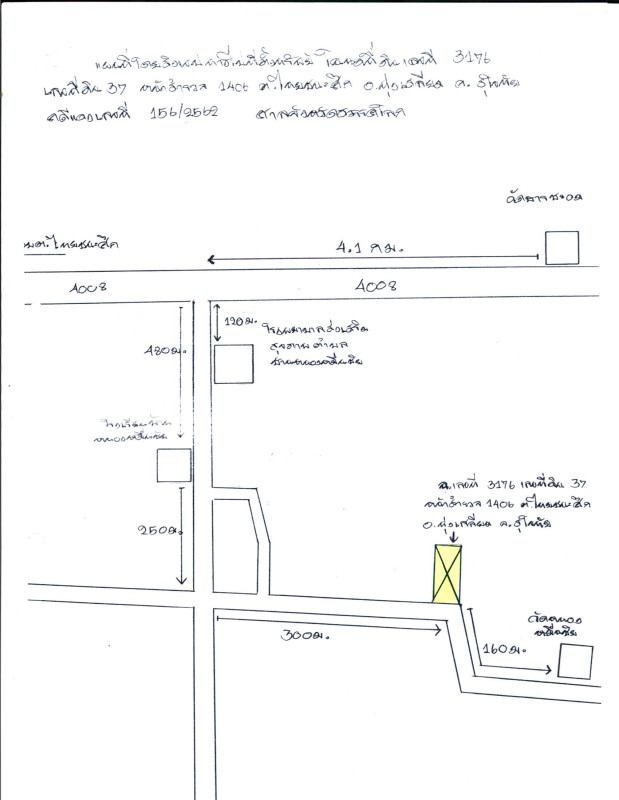 แผนที่โดยสังเขปแสดงที่ตั้งทรัพย์ โฉนดที่ดินเลขที่ 3176
เลขที่ดิน 37 หน้าสำรวจ 1406 ต.ไทยชนะศึก อ.ทุ่งเสลี่ยม จ.สุโขทัย
คดีแดงเลขที่ 156/2562 ศาลจังหวัดสวรรคโลก
4.1 กม.
ต.ไทยชนะศึก
4008
4008
120 ม.
โรงพยาบาลส่งเสริม
สุขภาพตำบล
480 ม.
โรงเรียนบ้าน
เลขที่ 3176 เลขที่ดิน 37
หน้าสำรวจ 1406 ต.ไทยชนะศึก
อ.ทุ่งเสลี่ยม จ.สุโขทัย
250 ม.
300 ม.
160 ม.